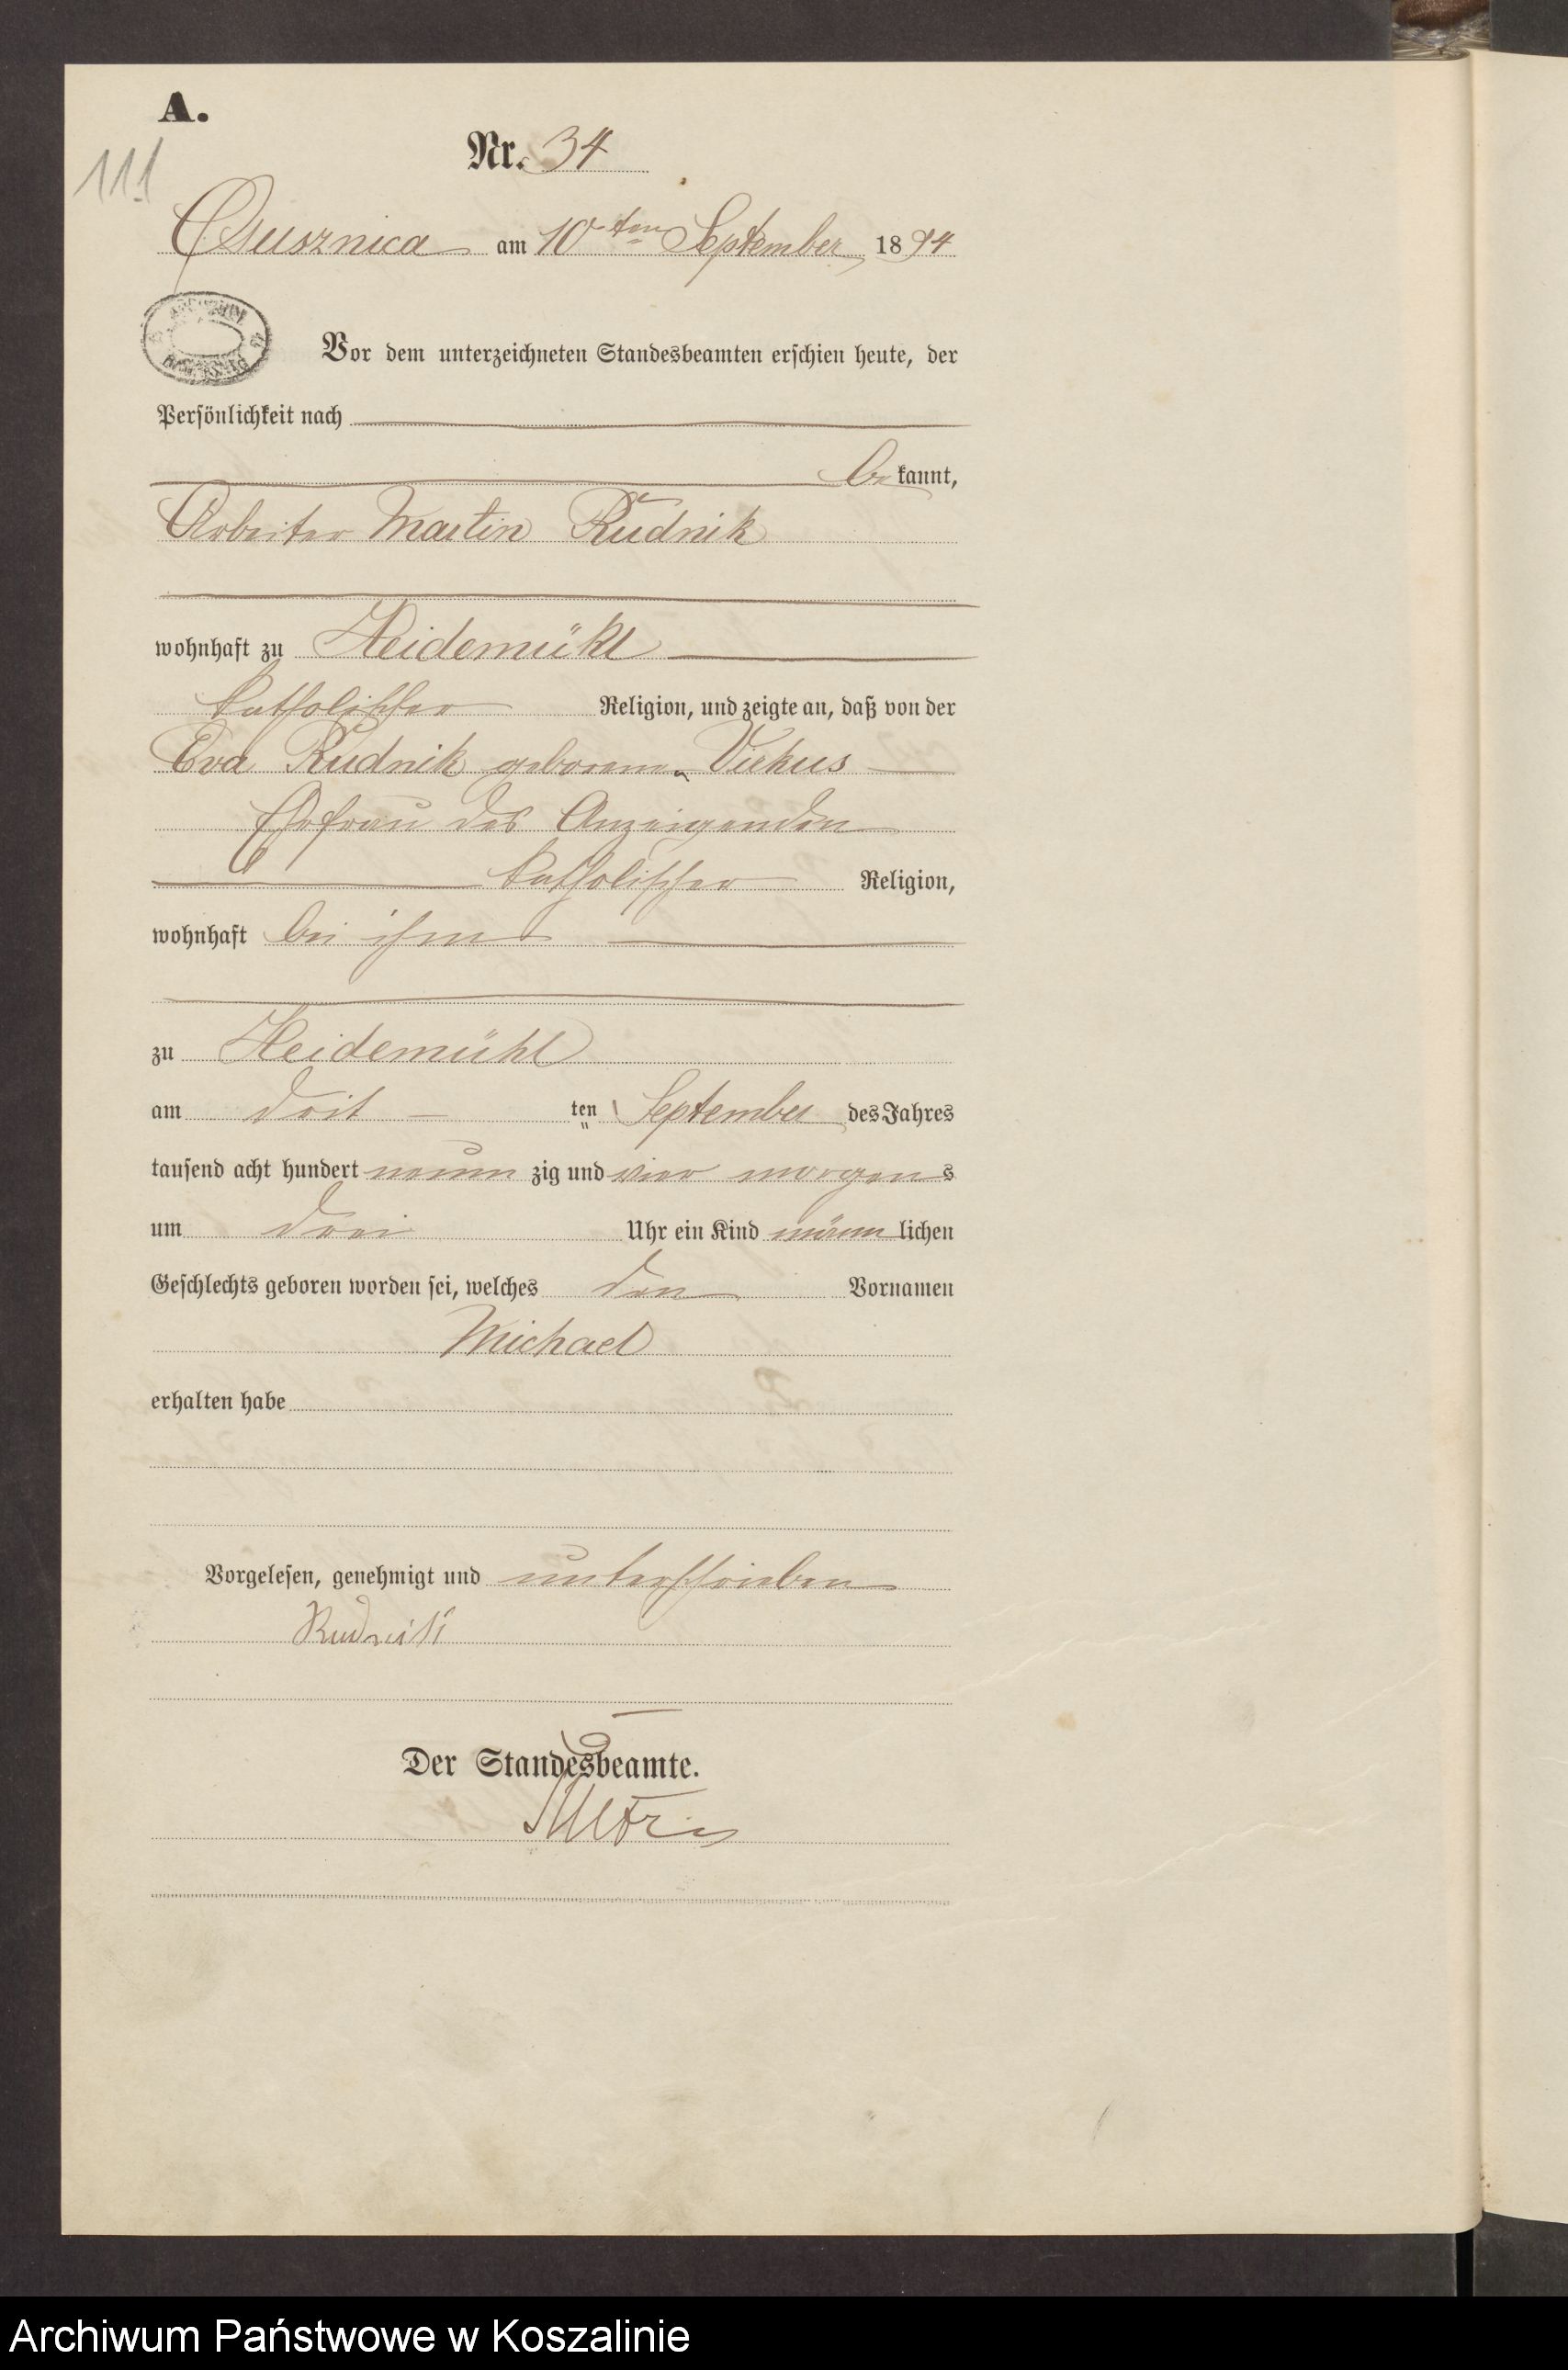 A.
111
Nr. 34
Osusznica am 10ten September 1894
Vor dem unterzeichneten Standesbeamten erschien heute, der
Persönlichkeit nach
bekannt,
Arbeiter Martin Rudnik
wohnhaft zu Heidemühl
katholischer Religion, und zeigte an, daß von der
Eva Rudnik geborenen
Ehefrau des Anzeigenden
katholischer Religion,
wohnhaft bei ihm
zu Heidemühl
am drit ten September des Jahres
tausend acht hundert neun zig und vier morgens
um drei Uhr ein Kind männlichen
Geschlechts geboren worden sei, welches den Vornamen
Michael
erhalten habe
Vorgelesen, genehmigt und unterschrieben
Der Standesbeamte.
Archiwum Państwowe w Koszalinie